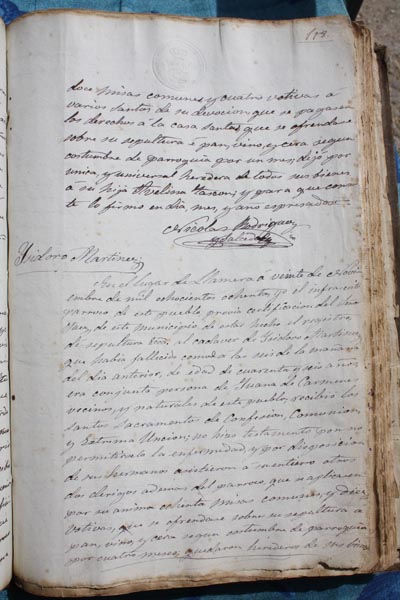 118
doce misas comunes, y cuatro votivas a
varios santos de su devocion, que se pagasen
los derechos a la casa santa, que se ofrendase
sobre su sepultura pan, vino, y cera segun
costumbre de parroquia por un mes; dejó por
unica, y universal heredera de todos sus bienes
a su hija Avelina Gascon; y para que cons-
te lo firmo en dia, mes, y año expresados
Nicolas Rodriguez
y
Isidoro Martinez
En el lugar de Llamera a veinte de Novi-
embre de mil ochocientos ochenta, yo el infraescrito
parroco de este pueblo, previa certificacion del
Juez, de este municipio de estar hecho el registro
de sepultura di a el cadaver de Isidoro Martinez,
que habia fallecido como a las seis de la mañana
del dia anterior, de edad de cuarenta y seis años,
era conjunta persona de Juana de Carmenes
vecinos, y naturales de este pueblo, recibio los
santos Sacramentos de Confesion, Comunion,
y Estrema Uncion; no hizo testamento por no
permitirselo la enfermedad, y por disposicion
de sus hermanos asistieron a su entierro otros
dos clerigos ademas del parroco, que se aplicasen
por su anima ochenta misas comunes, y diez
votivas, que se ofrendase sobre su sepultura
pan, vino, y cera segun costumbre de parroquia
por cuatro meses, quedaron herederos de sus bienes